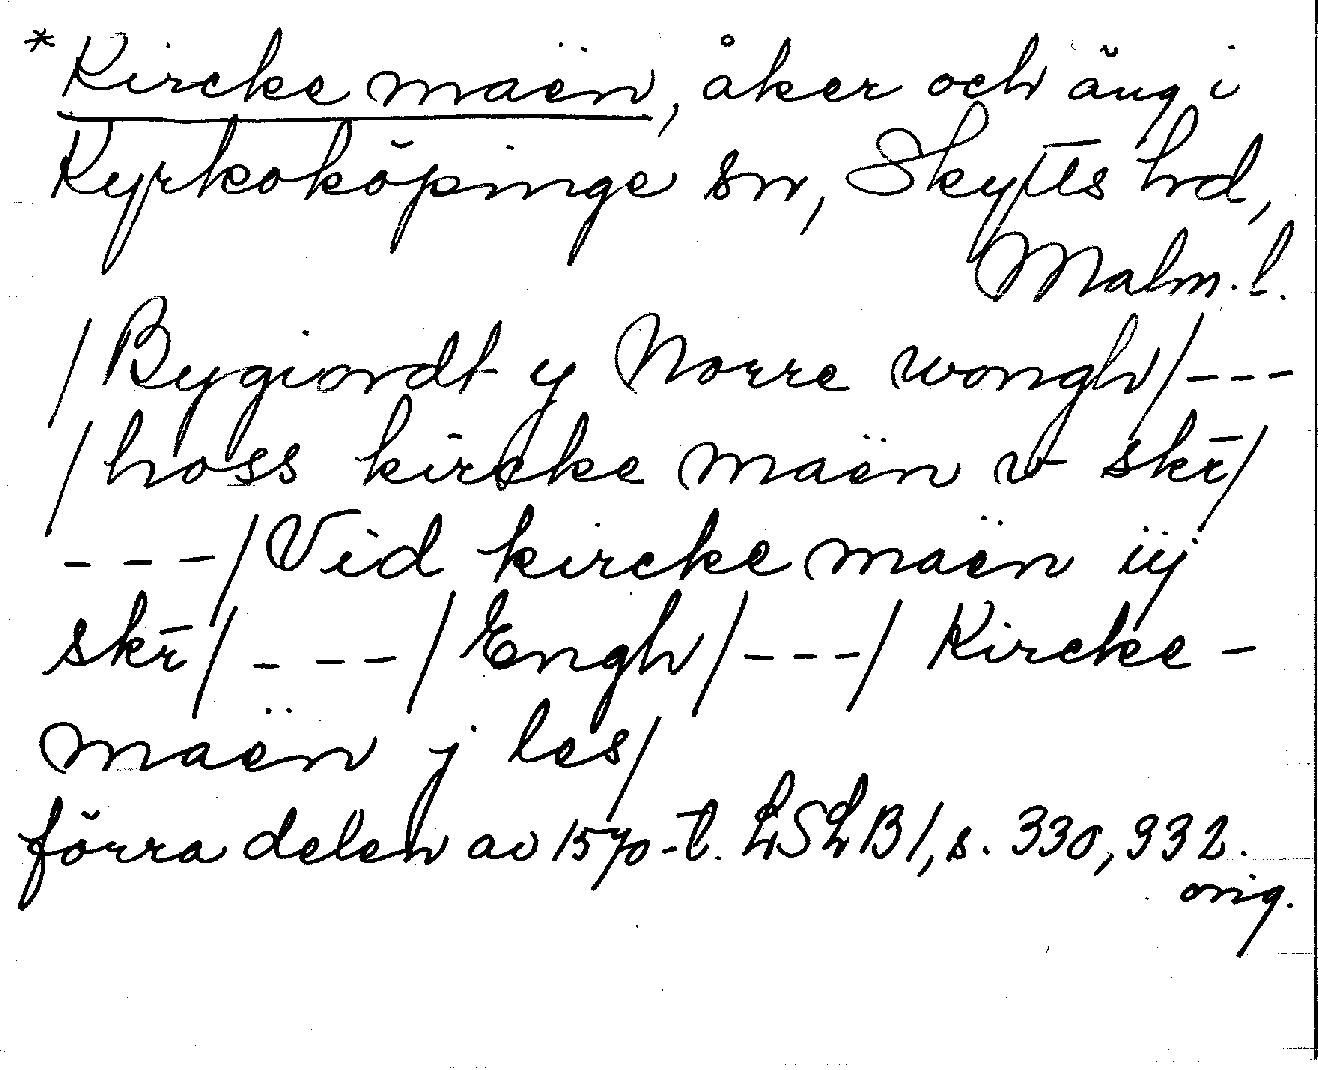 * Kircke maën, åker och äng i
Kyrkoköpinge sn, Skytts hd,
Malm. l.
/Bygiordt y Norre wongh/---
/hoss kircke maën v skr̄/
---/Vid kircke maën iij
skr̄/---/Engh/---/Kircke-
maën j les/
förra delen av 1570-t. LSLB 1, s. 330, 332.
orig.